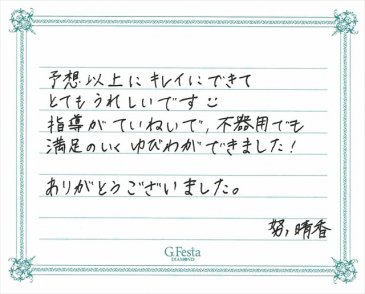 予想以上にキレイにできて
とてもうれしいです☺
指導がていねいで、不器用でも
満足のいくゆびわができました！
ありがとうございました。
努, 晴香
G.Festa
DIAMOND